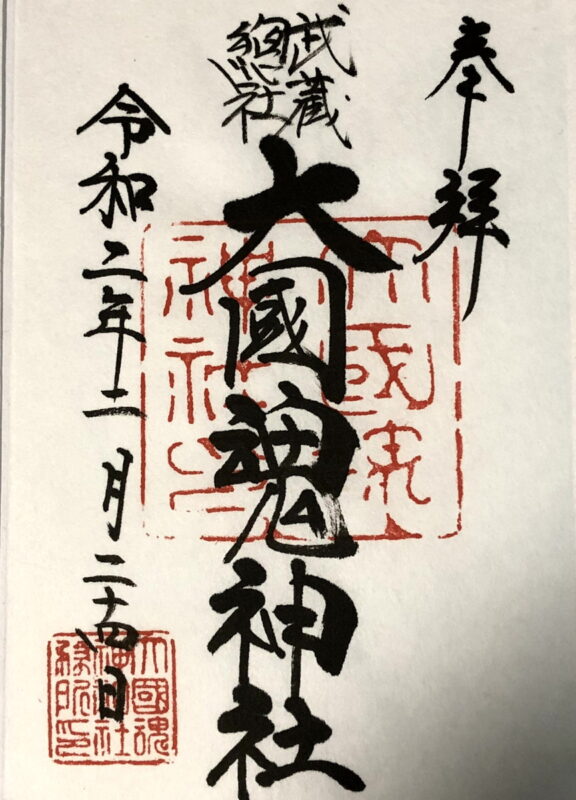 奉拝
武蔵
總社
大國魂神社
令和二年二月二十四日
大國魂
神社印
大國魂
神社社
務所印